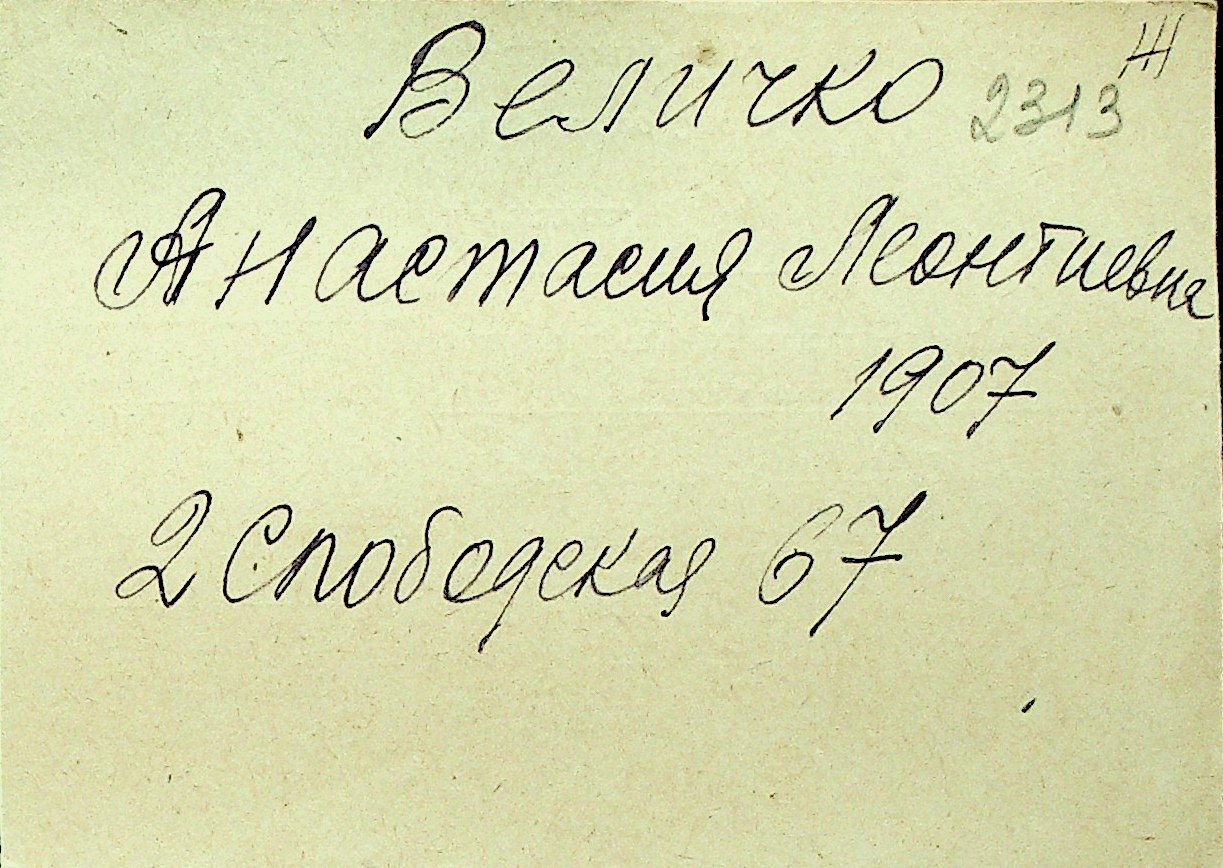 Величко 2313 Ж
Анастасия Леонтиевна
1907
2 Слободская 67